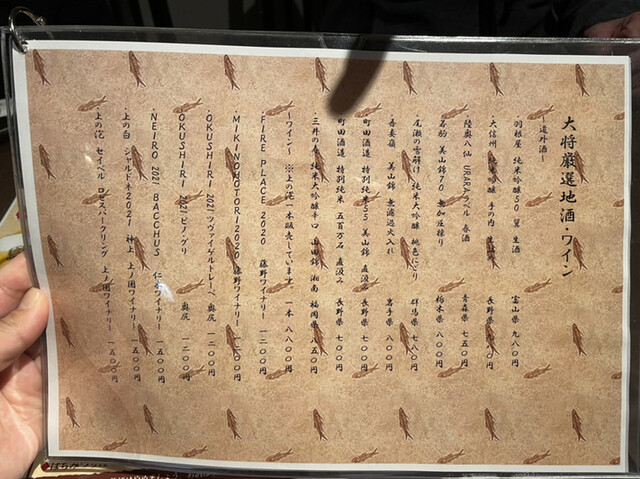 大将厳選地酒・ワイン
～道外酒～
羽根屋 純米吟醸50 翼 生酒 富山県 九八〇円
大信州 純米吟醸 手の内 長野県
陸奥八仙 URARAラベル 春酒 青森県 七五〇円
若駒 美山錦70 無加圧採り 栃木県 八〇〇円
尾瀬の雪解け 純米大吟醸 桃色にごり 群馬県 七八〇円
吾妻嶺 美山錦 無濾過火入れ 岩手県 八〇〇円
町田酒造 特別純米55 美山錦 直汲み 長野県 七〇〇円
町田酒造 特別純米 五百万石 直汲み 長野県 七〇〇円
・三井の寿 純米大吟醸辛口 山田錦 湘南 福岡県 八五〇円
～ワイン～ ※上の泡一本販売しています 一本 八八〇〇円
・FIRE PLACE 2020 藤野ワイナリー 一二〇〇円
・MIKINOHOTORI2020 藤野ワイナリー 一二〇〇円
・OKUSHIRI 2021 ツヴァイゲルトレーベ 奥尻 一二〇〇円
OKUSHIRI 2021 ピノ・グリ 奥尻 一二〇〇円
・NEIRO 2021 BACCHUS 仁木ワイナリー 一五〇〇円
上の白 シャルドネ2021 神上 上ノ国ワイナリー 一五〇〇円
上の泡 セイベル ロゼスパークリング 上ノ国ワイナリー 一五〇〇円